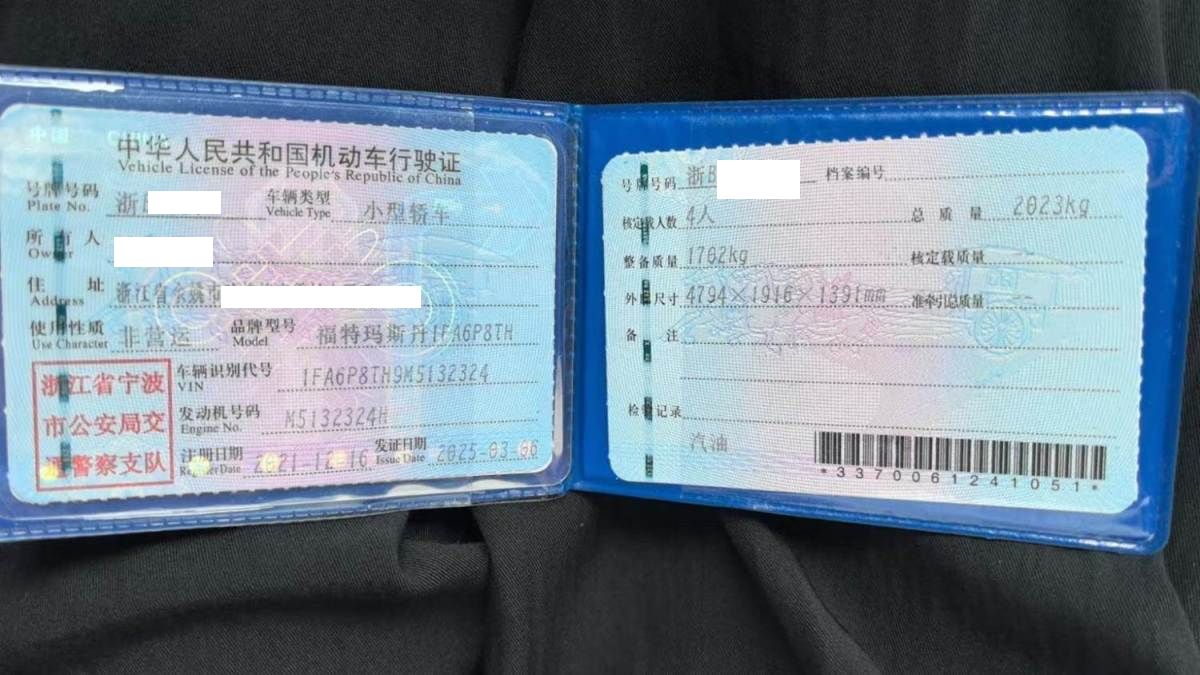 中国 CHINA
中华人民共和国机动车行驶证
Vehicle License of the People's Republic of China
号牌号码 浙B 车辆类型 小型轿车
Plate No. Vehicle Type
所有人
Owner
住址 浙江省余姚市
Address
使用性质 非营运 品牌型号 福特玛斯丹1FA6P8TH
Use Character Model
浙江省宁波
市公安局交
通警察支队
车辆识别代号 1FA6P8TH9M5132324
VIN
发动机号码 M5132324H
Engine No.
注册日期 2021-12-16 发证日期 2025-03-06
Register Date Issue Date
号牌号码 浙B 档案编号
核定载人数 4人 总质量 2023kg
整备质量 1702kg 核定载质量
外廓尺寸 4794×1916×1391mm 准牵引总质量
备注
检验记录
汽油
*3370061241051*